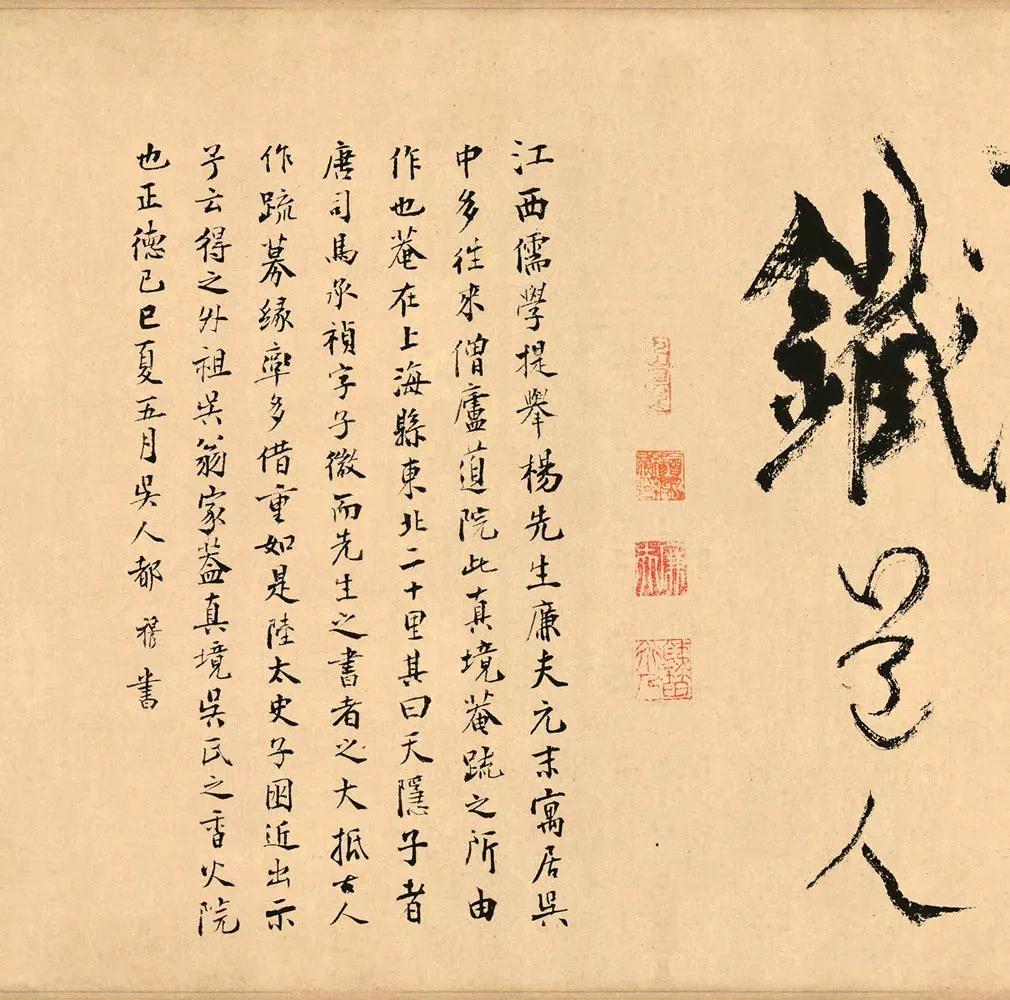 鐵道人
江西儒學提舉楊先生廉夫元末寓居吳
中多往來僧廬道院此真境菴疏之所由
作也菴在上海縣東北二十里其曰天隱子者
唐司馬承禎字子微而先生之書者之大抵古人
作疏募緣率多借重如是陸太史子困近出示
予云得之外祖吳翁家葢真境吳氏之香火院
也正德己巳夏五月吳人都穆書